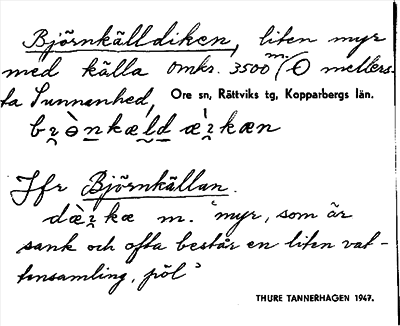 Björnkälldiken, liten myr
med källa omkr. 3500 m. / Ö mellers-
ta Sunnanhed, Ore sn, Rättviks tg, Kopparbergs län.
Jfr Björnkällan.
m. 'myr, som är
sank och ofta består en liten vat-
tensamling, pöl'
THURE TANNERHAGEN 1947.